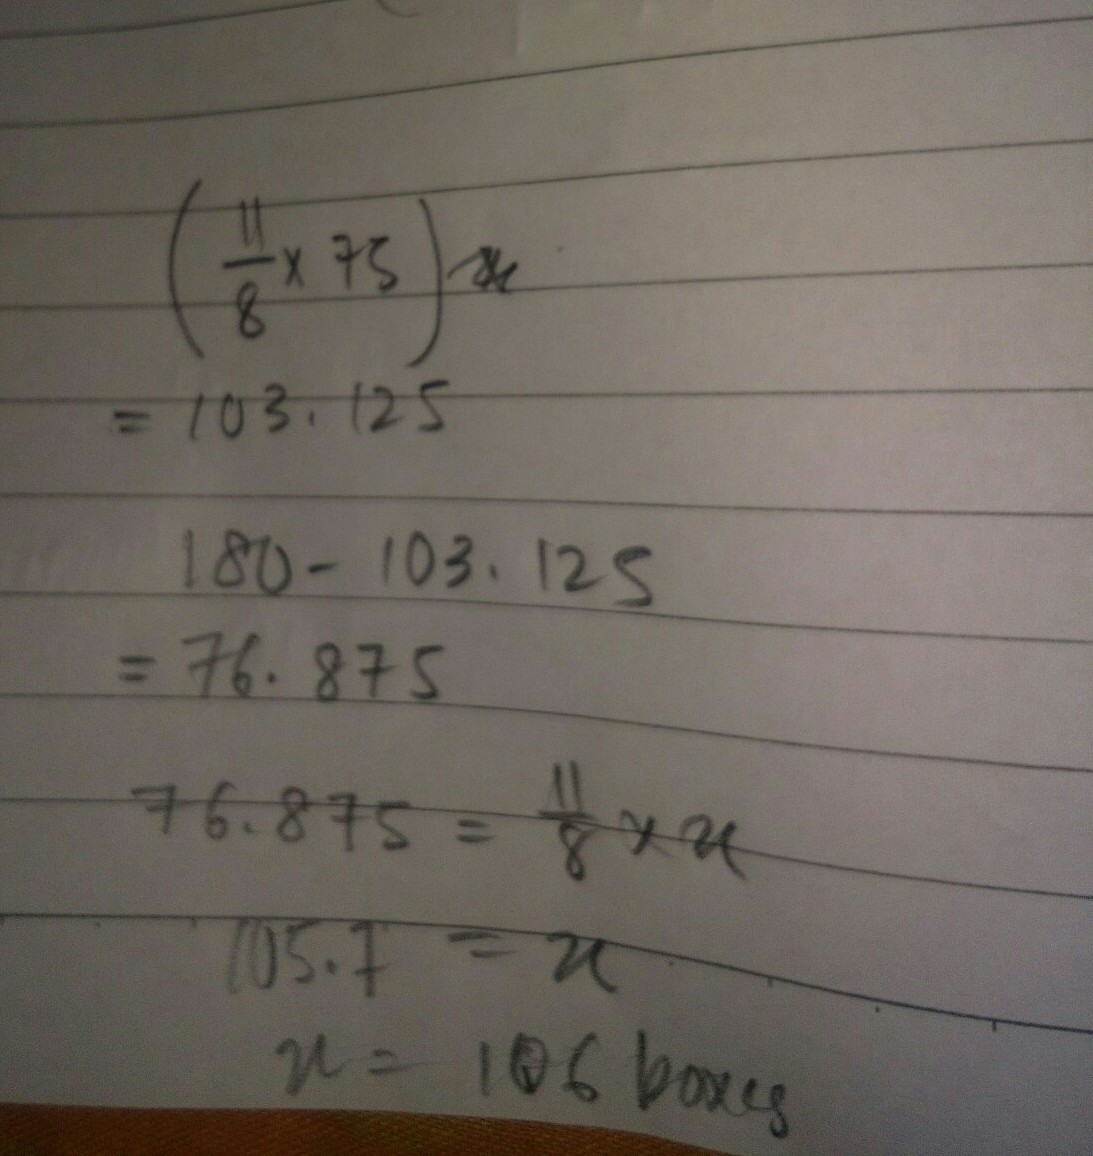 (11/8 x 75) x
= 103.125
180 - 103.125
= 76.875
76.875 = 11/8 x x
105.7 = x
x = 106 boxes